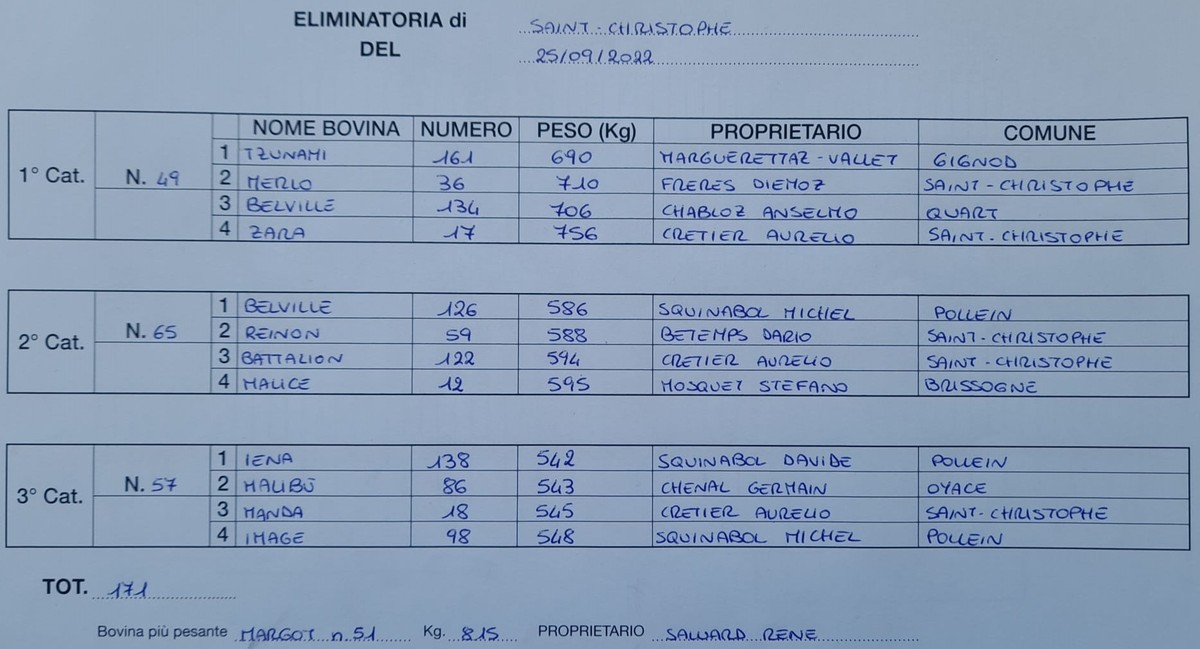 ELIMINATORIA di SAINT-CHRISTOPHE
DEL 25/09/2022
NOME BOVINA NUMERO PESO (Kg) PROPRIETARIO COMUNE
1° Cat. N. 49
1 TZUNAMI 161 690 MARGUERETTAZ-VALLET GIGNOD
2 MERLO 36 710 FRERES DIEMOZ SAINT-CHRISTOPHE
3 BELVILLE 134 706 CHABLOZ ANSELMO QUART
4 ZARA 17 756 CRETIER AURELIO SAINT-CHRISTOPHE
2° Cat. N. 65
1 BELVILLE 126 586 SQUINABOL MICHEL POLLEIN
2 REINON 59 588 BETEMPS DARIO SAINT-CHRISTOPHE
3 BATTALION 122 594 CRETIER AURELIO SAINT-CHRISTOPHE
4 MALICE 12 595 MOSQUET STEFANO BRISSOGNE
3° Cat. N. 57
1 IENA 138 542 SQUINABOL DAVIDE POLLEIN
2 MALIBÙ 86 543 CHENAL GERMAIN OYACE
3 MANDA 18 545 CRETIER AURELIO SAINT-CHRISTOPHE
4 IMAGE 98 548 SQUINABOL MICHEL POLLEIN
TOT. 171
Bovina più pesante MARGOT n.51 Kg. 815 PROPRIETARIO SALLUARD RENE